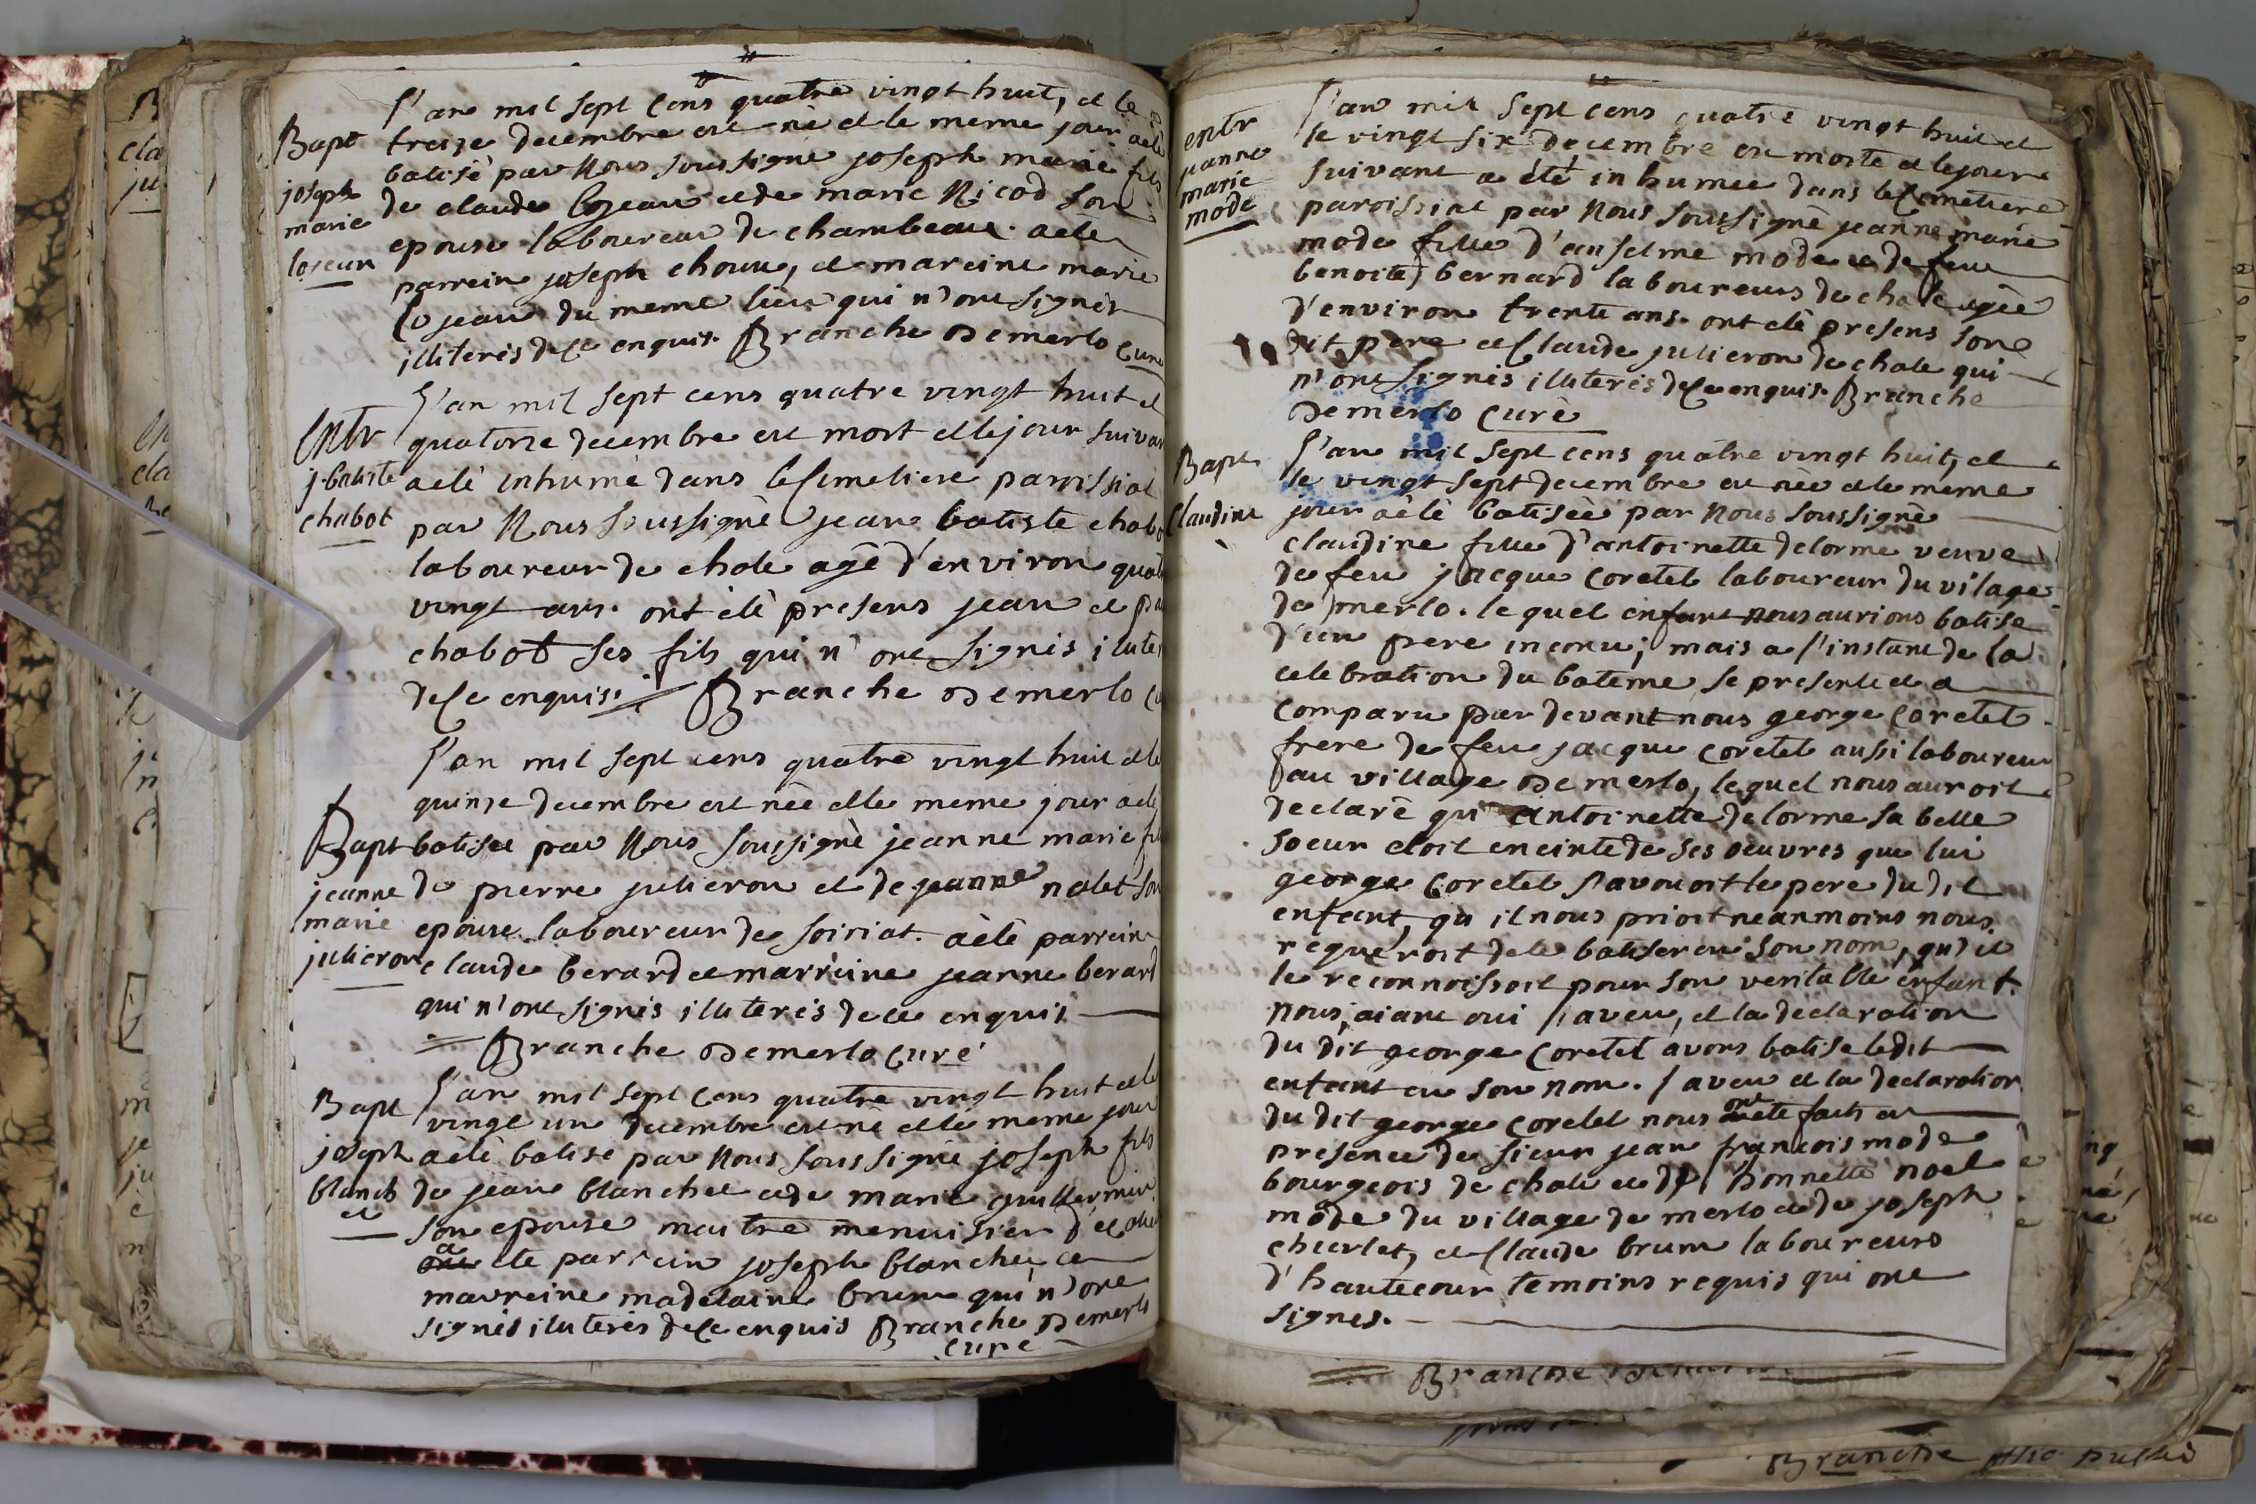 l'an mil sept cens quatre vingt huit, et le
Bapt
treize decembre est né et le meme jour a eté
batisé par nous soussigné joseph marie fils
joseph
marie
de claude lojean et de marie Nicod son
epouse laboureur de chambeau. a eté
lojean
parrein joseph chouu, et mareine marie
lojean du meme lieu qui n'ont signés
illiterés de ce enquis. Branche Demerlo curé
l'an mil sept cens quatre vingt huit et
Entr
quatorze decembre est mort et le jour suivan
j. batiste
a eté inhumé dans le cimetiere paroissial
chabot
par nous soussigné jean batiste chabo
laboureur de chole agé d'environ quatr
vingt ans. ont eté presens jean et
chabot ses fils qui n'ont signés iluter
de ce enquis. Branche Demerlo cu
l'an mil sept cens quatre vingt huit et le
quinze decembre est née et le meme jour a eté
Bapt
batisée par nous soussigné jeanne marie fil
jeanne
de pierre julieron et de jeanne nalet son
marie
epouse laboureur de soiriat. a eté parrein
julieron
claude berard et marreine jeanne berard
qui n'ont signés illuterés de ce enquis
Branche Demerlo curé
Bapt
l'an mil sept cens quatre vingt huit et le
vingt un decembre est né et le meme jour
joseph
a eté batisé par nous soussigné joseph fils
blanch
de jean blanchet et de marie guillermin
et
son epouse maitre menuisier d'
a
ont eté parrein joseph blanchet et
marreine madelaine brun qui n'ont
signés iluterés de ce enquis Branche Demerlo
curé
l'an mil sept cens quatre vingt huit et
entr
le vingt six decembre est morte et le jour
jeanne
marie
mode
suivant a été inhumée dans le cimetiere
paroissial par nous soussigné jeanne marie
mode fille d'anselme mode et de feue
benoite bernard laboureurs de chole agée
d'environ trente ans. ont eté presens son
dit pere et Claude julieron de chole qui
n'ont signés illuterés de ce enquis. Branche
Demerlo curé
Bapt
l'an mil sept cens quatre vingt huit, et
le vingt sept decembre est née et le meme
Claudine
jour a eté batisée par nous soussigné
claudine fille d'antoinette delorme veuve
de feu jacque coretel laboureur du vilage
de merlo. le quel enfant nous aurions batisé
d'un pere inconu; mais a l'instant de la
celebration du bateme se presente et a
comparu par devant nous george Coretel
frere de feu jacque coretel aussi laboureur
au village de merlo, lequel nous auroit
declaré qu'antoinette delorme sa belle
soeur etoit enceinte de ses oeuvres que lui
george Coretel s'avouoit le pere du dit
enfant, qu'il nous prioit neanmoins nous
requeroit de le batiser en son nom, qu'il
le reconnoissoit pour son veritable enfant.
nous, aiant oui l'aveu, et la declaration
du dit george Coretel avons batisé ledit
enfant en son nom. l'aveu et la declaration
du dit george coretel nous ont eté faits en
presence de sieur jean françois mode
bourgeois de chole et d' honnette noel
mode du village de merlo et de joseph
charlet, et Claude brun laboureurs
d'hautecour temoins requis qui ont
signés.
Branche
Branche